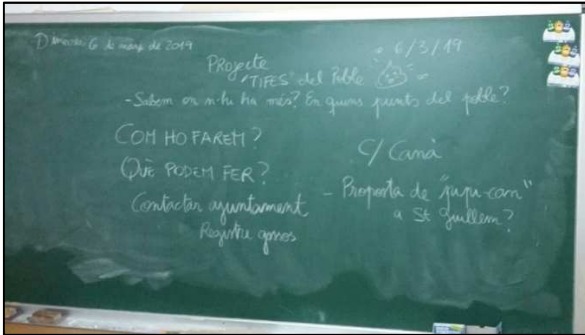 Dimecres 6 de març de 2019
6/3/19
Projecte
"TIFES" del Poble
- Sabem on n-hi ha més? En quins punts del poble?
COM HO FAREM?
QUÈ PODEM FER?
Contactar ajuntament
Registre gossos
C/ Canà
- Proposta de "pipi-can"
a St Guillem?